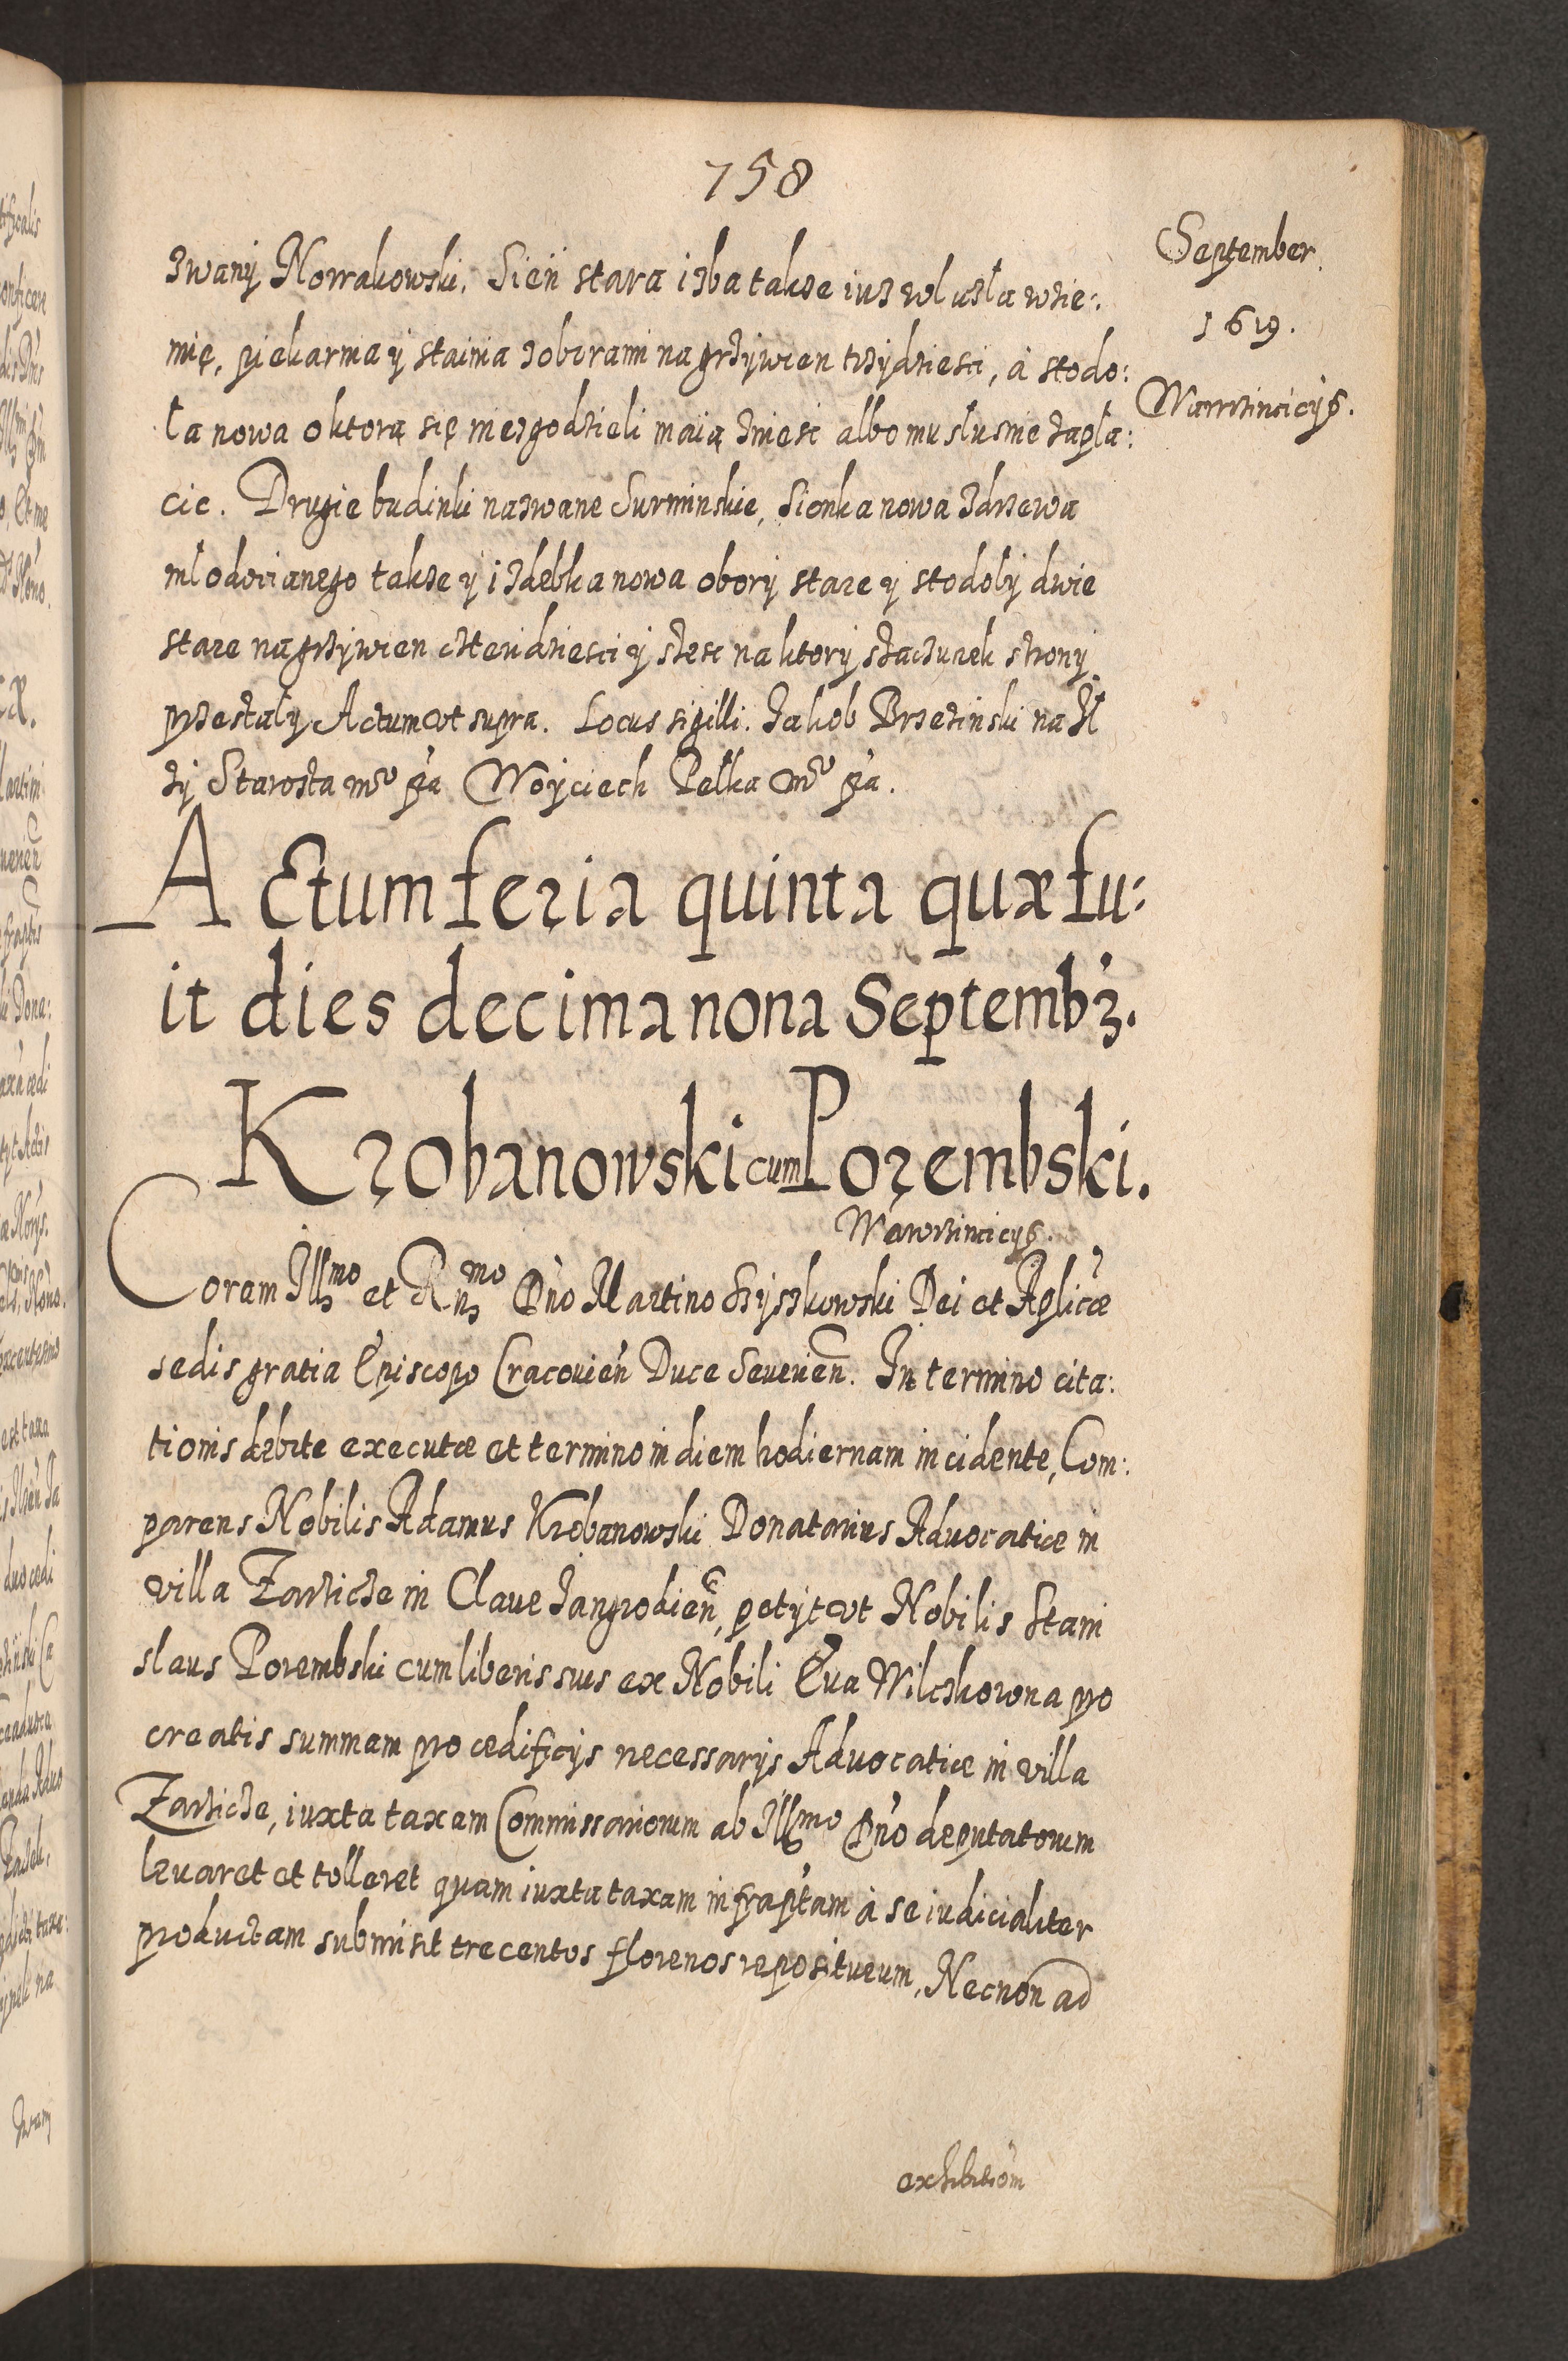 758
September
1619.
Wawrzincicys.
zwany Nowakowski. Sień stara izba takze iuz wlazła wzie:
mię, piekarnia y stainia z oborami na grzywien trzydziesci, á stodo:
ła nowa o ktorą się niezgodzieli maią znieść albo mu słusznie zapła:
cic. Drugie budinki nazwane Surminskie, Sionka nowa z drzewa
młodocianego takze y izdebka nowa obory stare y stodoły dwie
stare na grzywien czterdziesci y szesc na ktory szacunek strony
przestały Actum ut supra. Locus sigilli. Jakob Brzezinski na Jł
zy Starosta mͦ ppa Woyciech Pełka mͦ ppa.
Actum feria quinta quæ fu:
it dies decima nona Septembꝫ.
Krobanowski cum Porembski.
Wawrzincicys.
Coram Illmo et Rndmo Dno Martino Szyszkowski Dei et Aplicæ
sedis gratia Episcopo Cracovien Duce Severien. In termino cita:
tionis debite executæ et termino in diem hodiernam incidente, Com:
parens Nobilis Adamus Krobanowski Donatarius Advocatiæ in
villa Zarzicze in Clave Jangrodien, petyt ut Nobilis Stani
slaus Porembski cum liberis suis ex Nobili Eva Wilczkowna pro
creatis summam pro ædificys necessarys Advocatiæ in villa
Zarzicze, iuxta taxam Commissariorum ab Illmo Dno deputatorum
levaret et tolleret quam iuxta taxam infraptam á se iudicialiter
productam submisit trecentos florenos repositurum, Necnon ad
exhibitiom